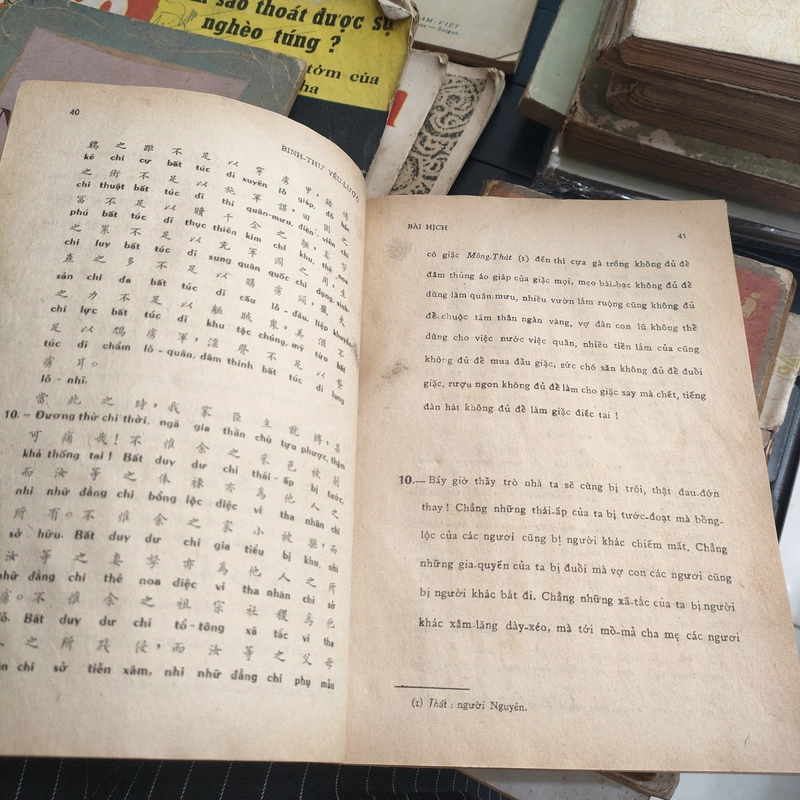 sao thoát được sự
nghèo túng ?
tởm của
40
BINH-THƯ YẾU-LƯỢC
鷄 之 距 不 足 以 穿 虜 甲, 賭 博
kê chi cự bất túc dĩ xuyên lỗ giáp, đổ bác
之 術 不 足 以 施 軍 謀, 田 園 之
chi thuật bất túc dĩ thi quân-mưu, điền viên chi
富 不 足 以 贖 千 金 之 軀, 妻 孥
phú bất túc dĩ thục thiên kim chi khu, thê noa
之 累 不 足 以 充 軍 國 之 用, 生
chi lụy bất túc dĩ sung quân quốc chi dụng, sinh
產 之 多 不 足 以 購 虜 頭, 獵 犬
sản chi đa bất túc dĩ cấu lỗ-đầu, liệp khuyển
之 力 不 足 以 驅 賊 衆, 美 酒 不
chi lực bất túc dĩ khu tặc chúng, mỹ tửu bất
足 以 鴆 虜 軍, 淫 聲 不 足 以 聾
túc dĩ chẩm lỗ-quân, dâm thinh bất túc dĩ lung
虜 耳。
lỗ-nhĩ.
當 此 之 時, 我 家 臣 主 就 縛, 甚
10.— Đương thử chi thời, ngã gia thần chủ tựu phược, thậm
可 痛 哉! 不 惟 余 之 采 邑 被 削
khả thống tai ! Bất duy dư chi thái-ấp bị tước,
而 汝 等 之 俸 祿 亦 爲 他 人 之
nhi nhữ đẳng chi bổng lộc diệc vi tha nhân chi
所 有。 不 惟 余 之 家 小 被 驅, 而
sở hữu. Bất duy dư chi gia tiểu bị khu, nhi
汝 等 之 妻 孥 亦 爲 他 人 之 所
nhữ đẳng chi thê noa diệc vi tha nhân chi sở
不 惟 余 之 祖 宗 社 稷 爲 他
Bất duy dư chi tổ-tông xã tắc vi tha
人 之 所 踐 侵, 而 汝 等 之 父 母
chi sở tiễn xâm, nhi nhữ đẳng chi phụ mẫu
BÀI HỊCH
41
có giặc Mông-Thát (1) đến thì cựa gà trống không đủ để
đâm thủng áo giáp của giặc mọi, mẹo bài-bạc không đủ để
dùng làm quân-mưu, nhiều vườn lắm ruộng cũng không đủ
để chuộc tấm thân ngàn vàng, vợ đàn con lũ không thể
dùng cho việc nước việc quân, nhiều tiền lắm của cũng
không đủ để mua đầu giặc, sức chó săn không đủ để đuổi
giặc, rượu ngon không đủ để làm cho giặc say mà chết, tiếng
đàn hát không đủ để làm giặc điếc tai !
10.— Bấy giờ thầy trò nhà ta sẽ cùng bị trói, thật đau-đớn
thay ! Chẳng những thái-ấp của ta bị tước-đoạt mà bổng-
lộc của các ngươi cũng bị người khác chiếm mất. Chẳng
những gia-quyến của ta bị đuổi mà vợ con các ngươi cũng
bị người khác bắt đi. Chẳng những xã-tắc của ta bị người
khác xâm-lăng dày-xéo, mà tới mồ-mả cha mẹ các ngươi
(1) Thát : người Nguyên.